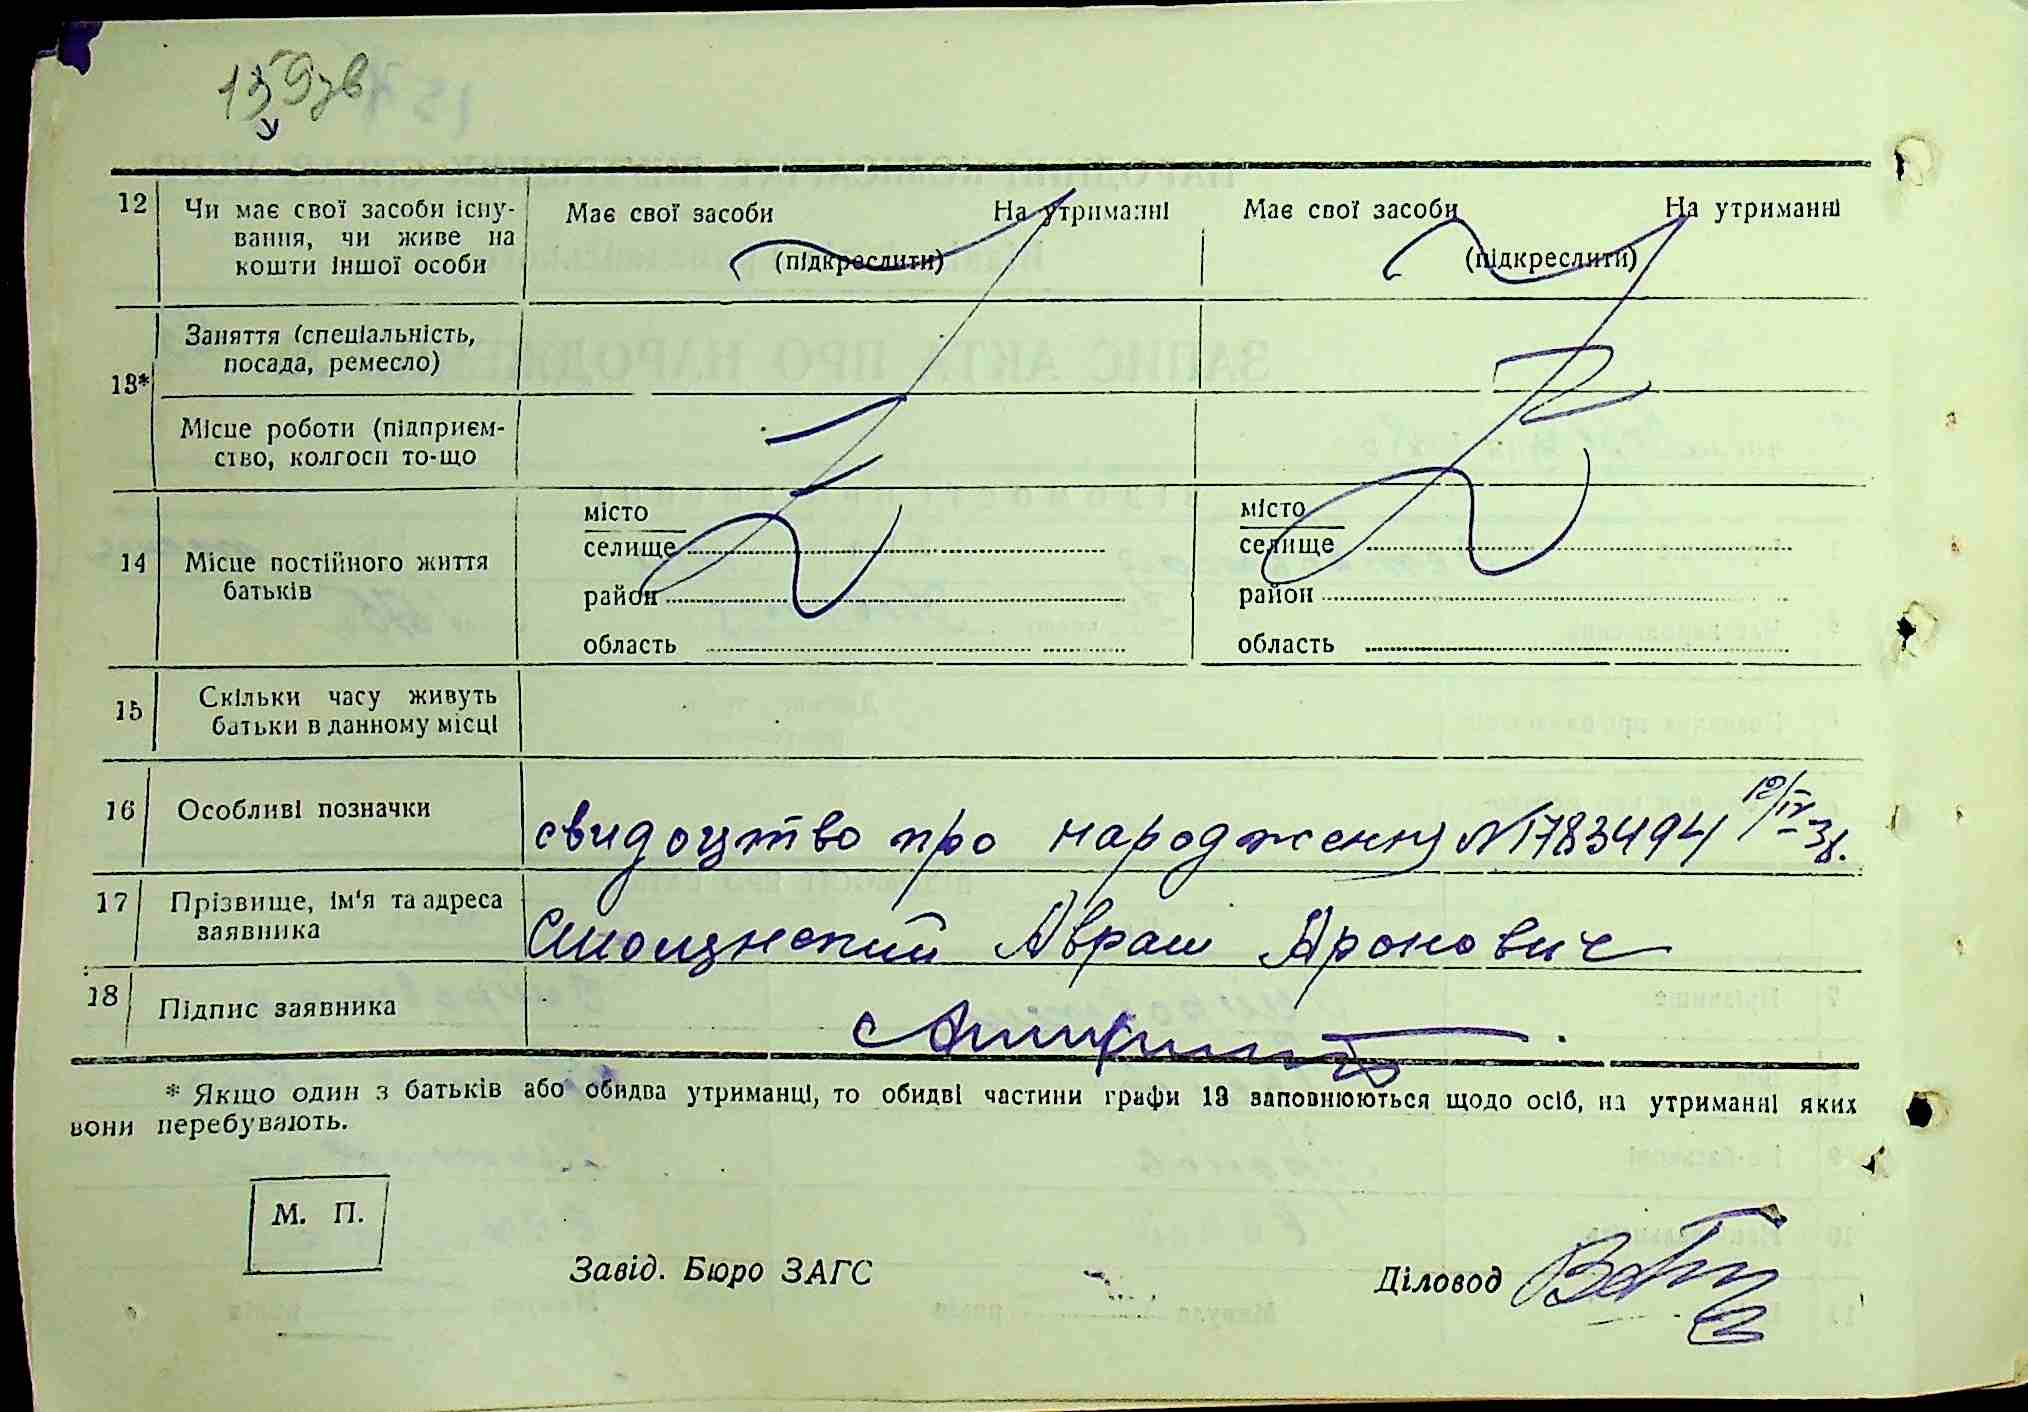 159зв
12 Чи має свої засоби існу- Має свої засоби На утриманні Має свої засоби На утриманні
вання, чи живе на
кошти іншої особи (підкреслити) (підкреслити)
13* Заняття (спеціальність,
посада, ремесло)
Місце роботи (підприєм-
ство, колгосп то-що
14 Місце постійного життя
батьків
місто місто
селище селище
район район
область область
15 Скільки часу живуть
батьки в данному місці
16 Особливі позначки свидоцтво про народження N 1783494 10/IV-38.
17 Прізвище, ім'я та адреса
заявника Аврам Аронович
18 Підпис заявника
* Якщо один з батьків або обидва утриманці, то обидві частини графи 13 заповнюються щодо осіб, на утриманні яких
вони перебувають.
М. П.
Завід. Бюро ЗАГС Діловод